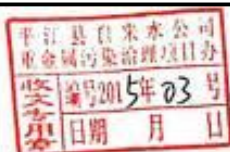 平江县自来水公司
重金属污染治理项目办
收文专用章
编号2015年03号
日期 月 日